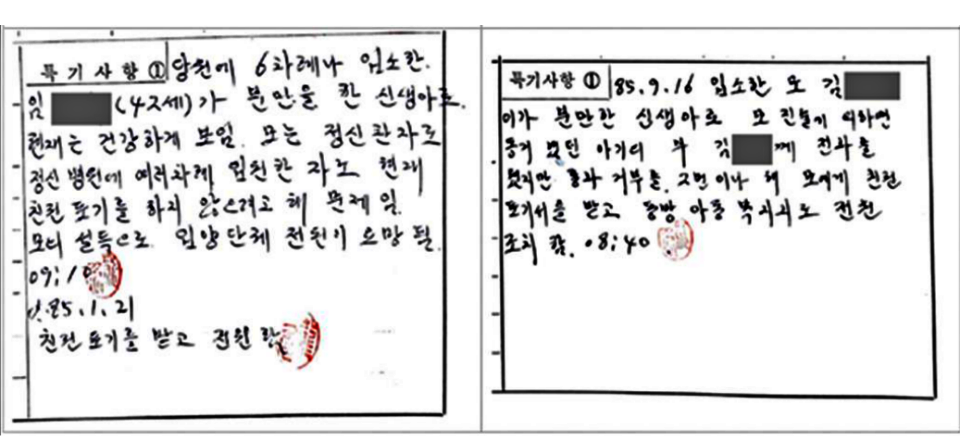 특기사항 ① 당원에 6차례나 입소한.
임 (42세)가 분만을 한 신생아로.
현재는 건강하게 보임. 모는 정신환자로
정신병원에 여러차례 입원한 자로 현재
친권 포기를 하지 않으려고 해 문제임.
모의 설득으로 입양단체 전원이 요망됨.
09:10
85.1.21
친권포기를 받고 전원 함.
특기사항 ① 85.9.16 입소한 모 김
이가 분만한 신생아로 모 진술에 의하면
동거 했던 아기의 부 김 께 전화를
했지만 통화 거부를. 그런 이나 해 모에게 친권
포기서를 받고 동방 아동 복지회로 전원
조치 함. 08:40